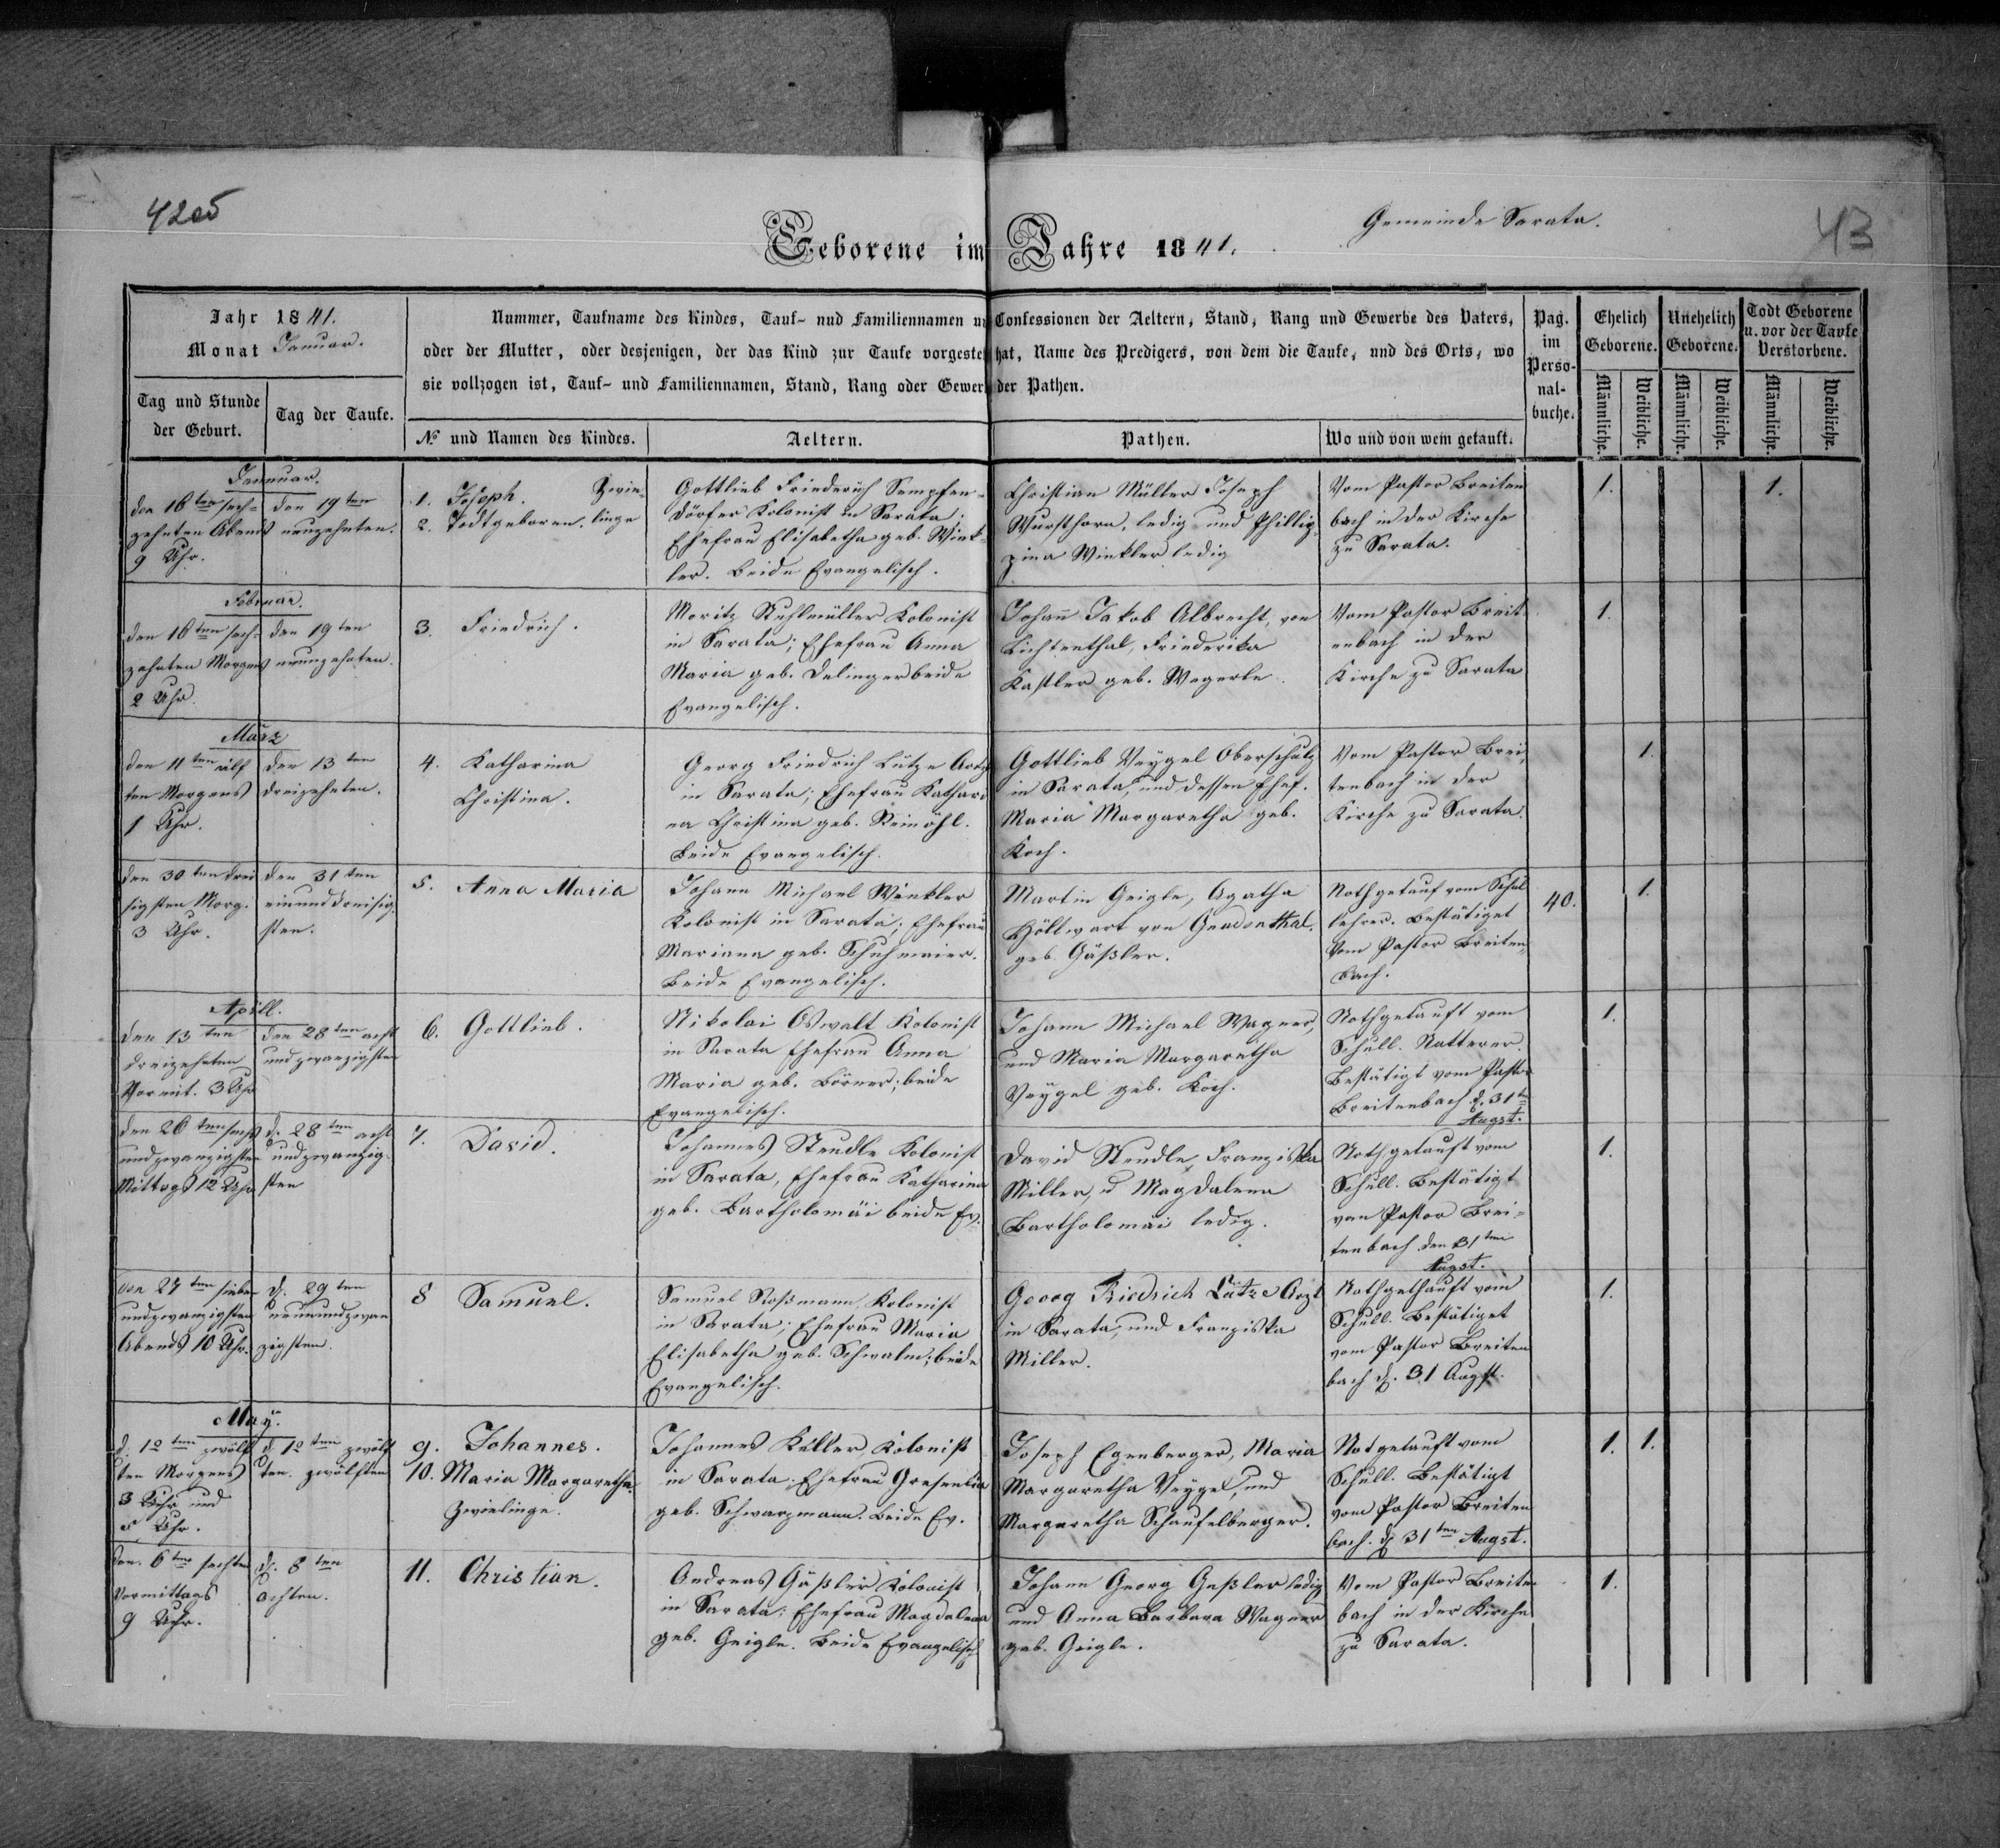 42об
Gemeinde Sarata.
43
Geborene im Jahre 1841.
Jahr 1841.
Monat Januar.
Tag und Stunde
der Geburt.
Tag der Taufe.
Nummer, Taufname des Kindes, Tauf- nud Familiennamen un Confessionen der Aeltern, Stand, Rang und Gewerbe des Vaters,
oder der Mutter, oder desjenigen, der das Kind zur Taufe vorgestel hat, Name des Predigers, von dem die Taufe, und des Orts, wo
sie vollzogen ist, Tauf- und Familiennamen, Stand, Rang oder Gewer der Pathen.
№ und Namen des Kindes.
Aeltern.
Pathen.
Wo und von wem getauft.
Pag.
im
Perso-
nal-
buche.
Ehelich
Geborene.
Unehelich
Geborene.
Todt Geborene
u. vor der Taufe
Verstorbene.
Männliche.
Weibliche.
Männliche.
Weibliche.
Männliche.
Weibliche.
Januar.
den 16ten sech-
zehnten Abends
9 Uhr.
den 19ten
neunzehnten.
1. Joseph. Zwie-
2. Todtgeboren. linge
Gottlieb Friederich Sempfen-
dörfer Kolonist in Sarata.
Ehefrau Elisabetha geb. Wink-
ler. beide Evangelisch.
Christian Müller Joseph
Wursthorn, ledig und Phillip-
pina Winkler ledig
Vom Pastor Breiten
bach in der Kirche
zu Sarata.
1.
1.
Februar.
den 16ten sech-
zehnten Morgens
2 Uhr.
den 19ten
neunzehnten.
3. Friedrich.
Moritz Stuhlmüller Kolonist
in Sarata; Ehefrau Anna
Maria geb. Delinger beide
Evangelisch.
Johann Jakob Albrecht, von
Lichtenthal, Friederika
Kastler geb. Wegerle.
Vom Pastor Breit-
enbach in der
Kirche zu Sarata
1.
März
den 11ten elf
ten Morgens
1 Uhr.
den 13ten
dreizehnten.
4. Katharina
Christina.
Georg Friedrich Lütze Arzt
in Sarata; Ehefrau Kathari
na Christina geb. Reinöhl.
beide Evangelisch.
Gottlieb Veygel Oberschulz
in Sarata, und dessen Ehef.
Maria Margaretha geb.
Koch.
Vom Pastor Brei-
tenbach in der
Kirche zu Sarata.
1.
den 30ten drei
sigsten Morg.
3 Uhr.
den 31ten
einunddreisig-
sten.
5. Anna Maria
Johann Michael Winkler
Kolonist in Sarata; Ehefrau
Mariana geb. Schuhmaier.
beide Evangelisch.
Martin Geigle, Agatha
Höllwart von Gnadenthal.
geb. Gäßler.
Nothgetauf vom Schul
lehrer. bestätiget
vom Pastor Breiten-
bach.
40.
1.
Aprill.
den 13ten
dreizehnten
Vormit. 3 Uhr
den 28ten acht
undzwanzigsten
6. Gottlieb.
Nikolai Oswalt Kolonist
in Sarata Ehefrau Anna
Maria geb. Börner; beide
Evangelisch.
Johann Michael Wagner,
und Maria Margaretha
Veygel geb. Koch.
Nothgetauft vom
Schull. Natterer.
Bestätigt vom Pastor
Breitenbach d. 31ten
Augst.
1.
den 26ten sechs
undzwanzigsten
Mittags 12 Uhr
d. 28ten acht
undzwanzig-
sten
7. David.
Johannes Steudle Kolonist
in Sarata, Ehefrau Katharina
geb. Bartholomäi beide Ev.
David Steudle, Franziska
Miller, u Magdalena
Bartholomäi ledig.
Nothgetauft vom
Schull. Bestätigt
von Pastor Brei-
tenbach den 31ten
Augst.
1.
den 27ten sieben
undzwanzigsten
Abends 10 Uhr.
d. 29ten
neunundzwan
zigsten.
8 Samuel.
Samuel Roßmann, Kolonist
in Sarata; Ehefrau Maria
Elisabetha geb. Schwalm; beide
Evangelisch.
Georg Friedrich Lütze Arzt
in Sarata, und Franziska
Miller.
Nothgethauft vom
Schull. Bestätiget
vom Pastor Breiten
bach d. 31 Augst.
1.
May.
d. 12ten zwölf
ten Morgens
3 Uhr und
5 Uhr.
d. 12ten zwölf
ten. zwölften
9. Johannes.
10. Maria Margaretha.
Zwielinge.
Johannes Keller Kolonist
in Sarata; Ehefrau Gresentia
geb. Schwarzmann. beide Ev.
Joseph Egenberger, Maria
Margaretha Veygel, und
Margaretha Schaufelberger.
Notgetauft vom
Schull. Bestätigt
vom Pastor Breiten
bach. d 31ten Augst.
1. 1.
den. 6ten sechten
Vormittags
9 Uhr.
d. 8ten
achten.
11. Christian.
Andreas Gäßler Kolonist
in Sarata; Ehefrau Magdalena
geb. Geigle. beide Evangelisch
Johann Georg Geßler ledig
und Anna Barbara Wagner
geb. Geigle.
Vom Pastor Breiten
bach in der Kirche
zu Sarata.
1.